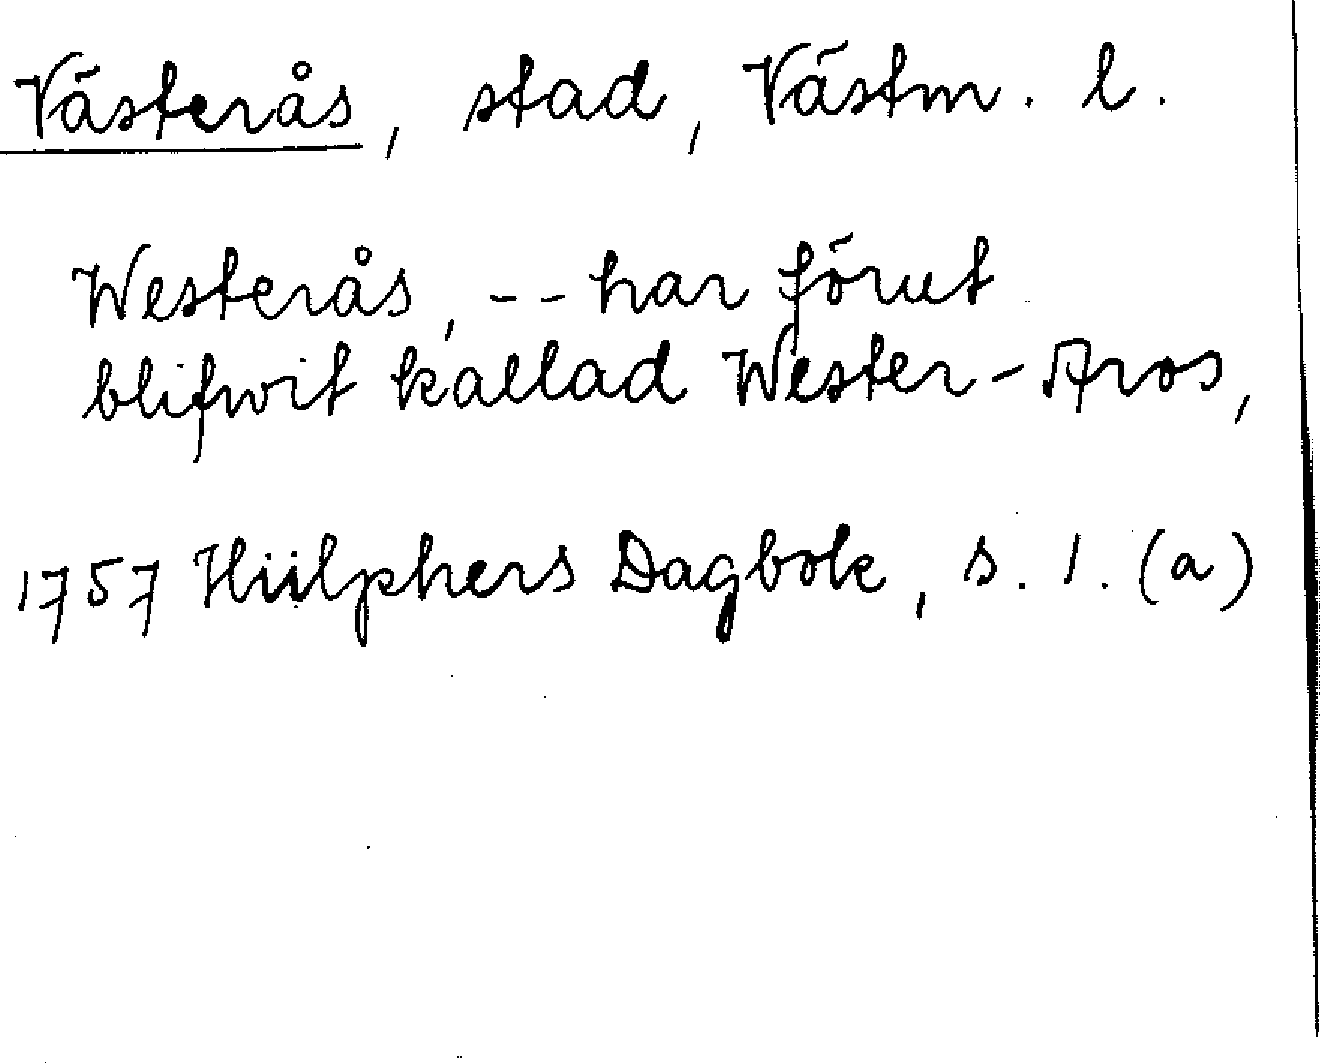 Västerås, stad, Västm. l.
Westerås, -- har förut
blifwit kallad Wester-Aros,
1757 Hülphers Dagbok, s. 1. (a)